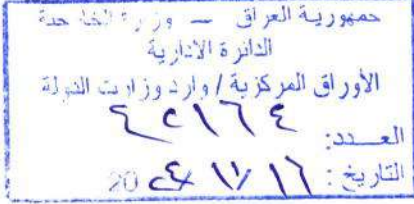 جمهورية العراق – وزارة الخارجية
الدائرة الادارية
الأوراق المركزية / وارد وزارات الدولة
العدد: ٤٢١٦٤
التاريخ: ١٦ / ١١ / ٢٠٢٤